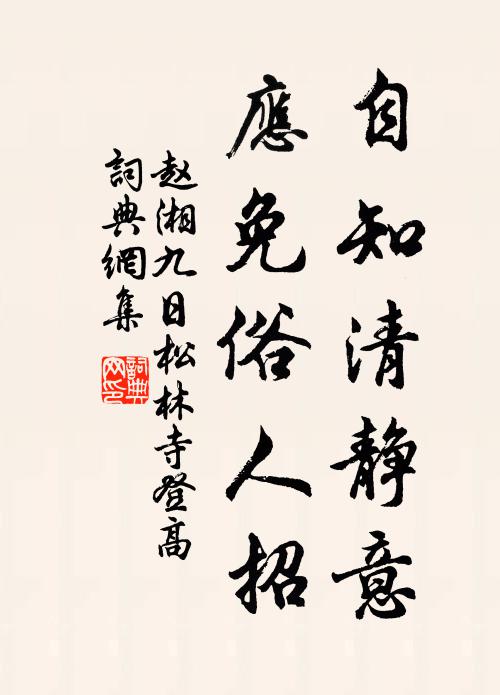 自知清静意
應免俗人招
赵湘九日松林寺登高
詞典網集
詞典网印